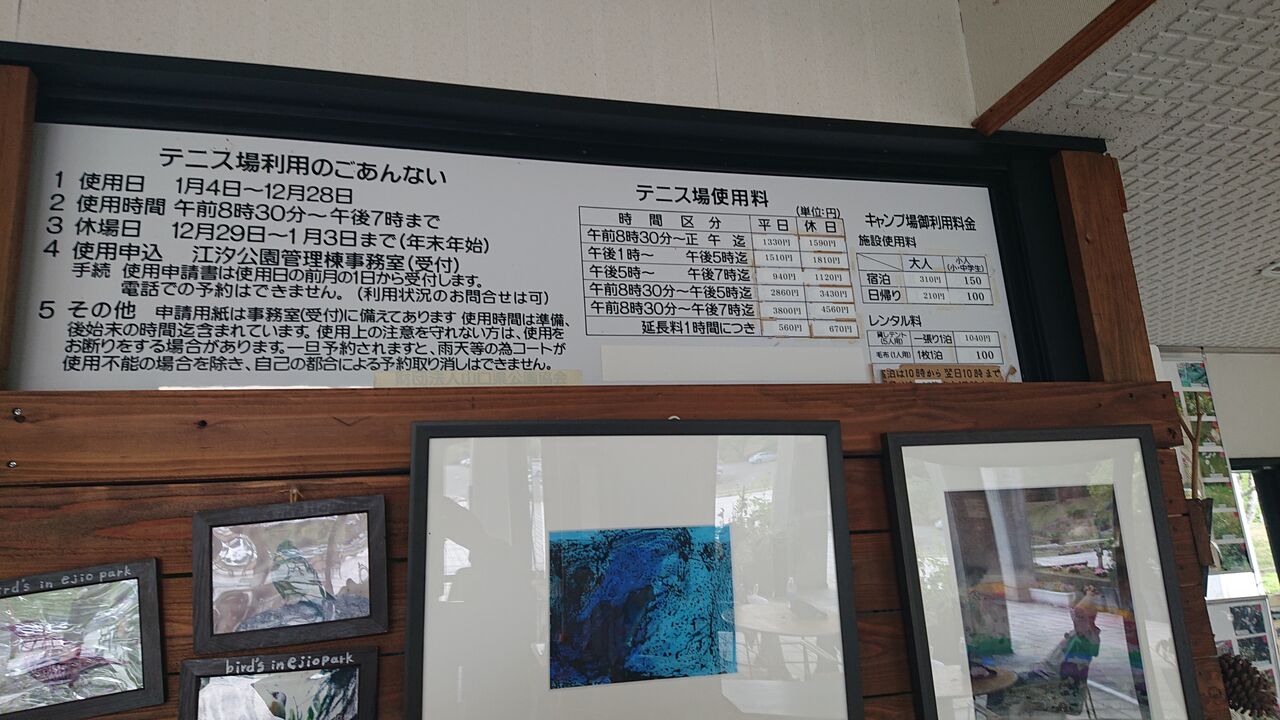 テニス場利用のごあんない
1 使用日 1月4日～12月28日
2 使用時間 午前8時30分～午後7時まで
3 休場日 12月29日～1月3日まで(年末年始)
4 使用申込 江汐公園管理棟事務室(受付)
手続 使用申請書は使用日の前月の1日から受付します。
電話での予約はできません。(利用状況のお問合せは可)
5 その他 申請用紙は事務室(受付)に備えてあります 使用時間は準備、
後始末の時間迄含まれています。使用上の注意を守れない方は、使用を
お断りをする場合があります。一旦予約されますと、雨天等の為コートが
使用不能の場合を除き、自己の都合による予約取り消しはできません。
財団法人山口県公園協会
テニス場使用料
(単位:円)
時間区分 平日 休日
午前8時30分～正午迄 1330円 1590円
午後1時～ 午後5時迄 1510円 1810円
午後5時～ 午後7時迄 940円 1120円
午前8時30分～午後5時迄 2860円 3430円
午前8時30分～午後7時迄 3800円 4560円
延長料1時間につき 560円 670円
キャンプ場御利用料金
施設使用料
大人 小人(小・中学生)
宿泊 310円 150
日帰り 210円 100
レンタル料
貸しテント(5人用) 一張り1泊 1040円
毛布(1人用) 1枚1泊 100
宿泊は10時から翌日10時まで
bird's in ejio park
bird's in ejio park